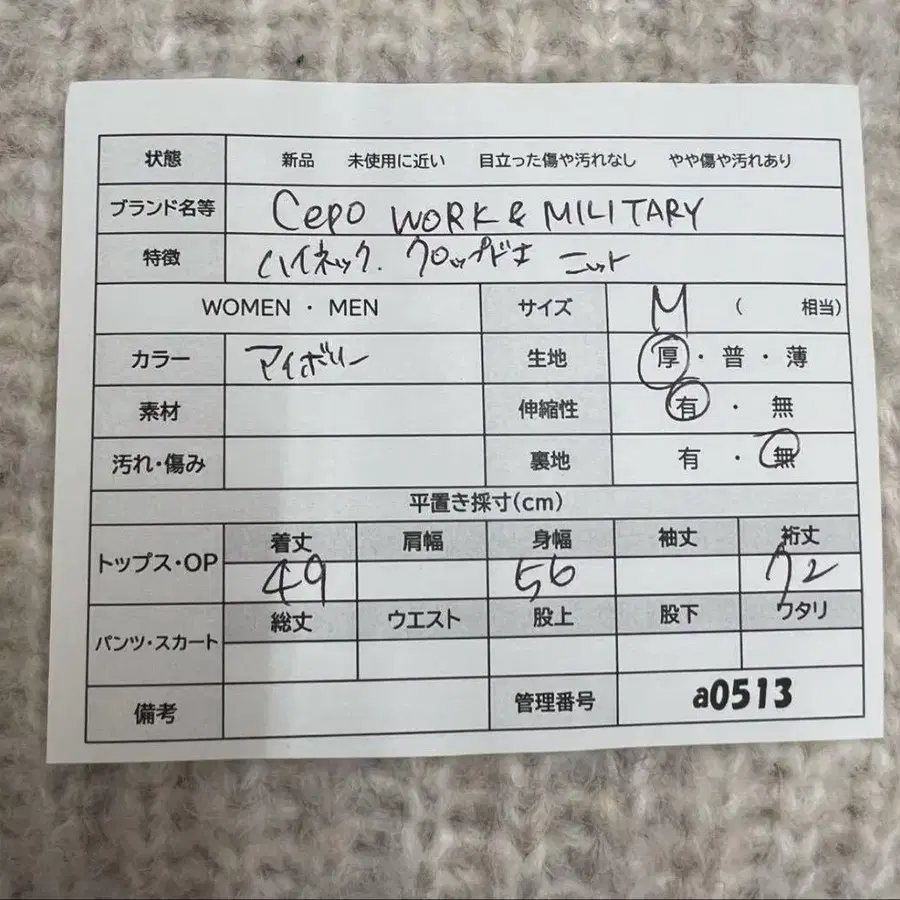 状態 新品 未使用に近い 目立った傷や汚れなし やや傷や汚れあり
ブランド名等 Cepo WORK & MILITARY
特徴 ハイネック. クロップド丈 ニット
WOMEN ・ MEN サイズ M ( 相当)
カラー アイボリー 生地 厚 ・ 普 ・ 薄
素材 伸縮性 有 ・ 無
汚れ・傷み 裏地 有 ・ 無
平置き採寸(cm)
トップス・OP 着丈 肩幅 身幅 袖丈 裄丈
49 56 72
パンツ・スカート 総丈 ウエスト 股上 股下 ワタリ
備考 管理番号 a0513